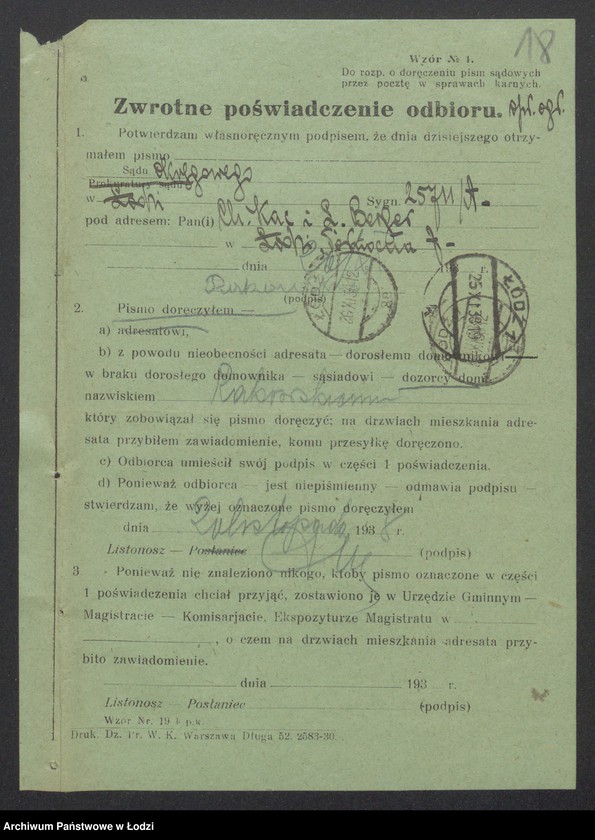 18
Wzór № 1.
Do rozp. o doręczeniu pism sądowych
przez pocztę w sprawach karnych.
Zwrotne poświadczenie odbioru.
1. Potwierdzam własnoręcznym podpisem, że dnia dzisiejszego otrzy-
małem pismo
Sądu Okręgowego
Prokuratury Sądu
w Łodzi Sygn. 2571/A-
pod adresem: Pan(i) Ch. Kac i L. Berger
w Łodzi, 7-
dnia 193 r.
(podpis)
2. Pismo doręczyłem —
a) adresatowi,
b) z powodu nieobecności adresata — dorosłemu domownikowi —
w braku dorosłego domownika — sąsiadowi — dozorcy domu
nazwiskiem Rakowskiemu
który zobowiązał się pismo doręczyć; na drzwiach mieszkania adre-
sata przybiłem zawiadomienie, komu przesyłkę doręczono.
c) Odbiorca umieścił swój podpis w części 1 poświadczenia.
d) Ponieważ odbiorca — jest niepiśmienny — odmawia podpisu —
stwierdzam, że wyżej oznaczone pismo doręczyłem
dnia listopada 1938 r.
Listonosz — Posłaniec (podpis)
3 - Ponieważ nie znaleziono nikogo, ktoby pismo oznaczone w części
1 poświadczenia chciał przyjąć, zostawiono je w Urzędzie Gminnym —
Magistracie — Komisarjacie, Ekspozyturze Magistratu w
, o czem na drzwiach mieszkania adresata przy-
bito zawiadomienie.
dnia 193 r.
Listonosz — Posłaniec (podpis)
Wzór Nr. 19 k p.k.
Druk. Dz. Pr. W. K. Warszawa Długa 52. 2583-30.
ŁÓDŹ
Archiwum Państwowe w Łodzi